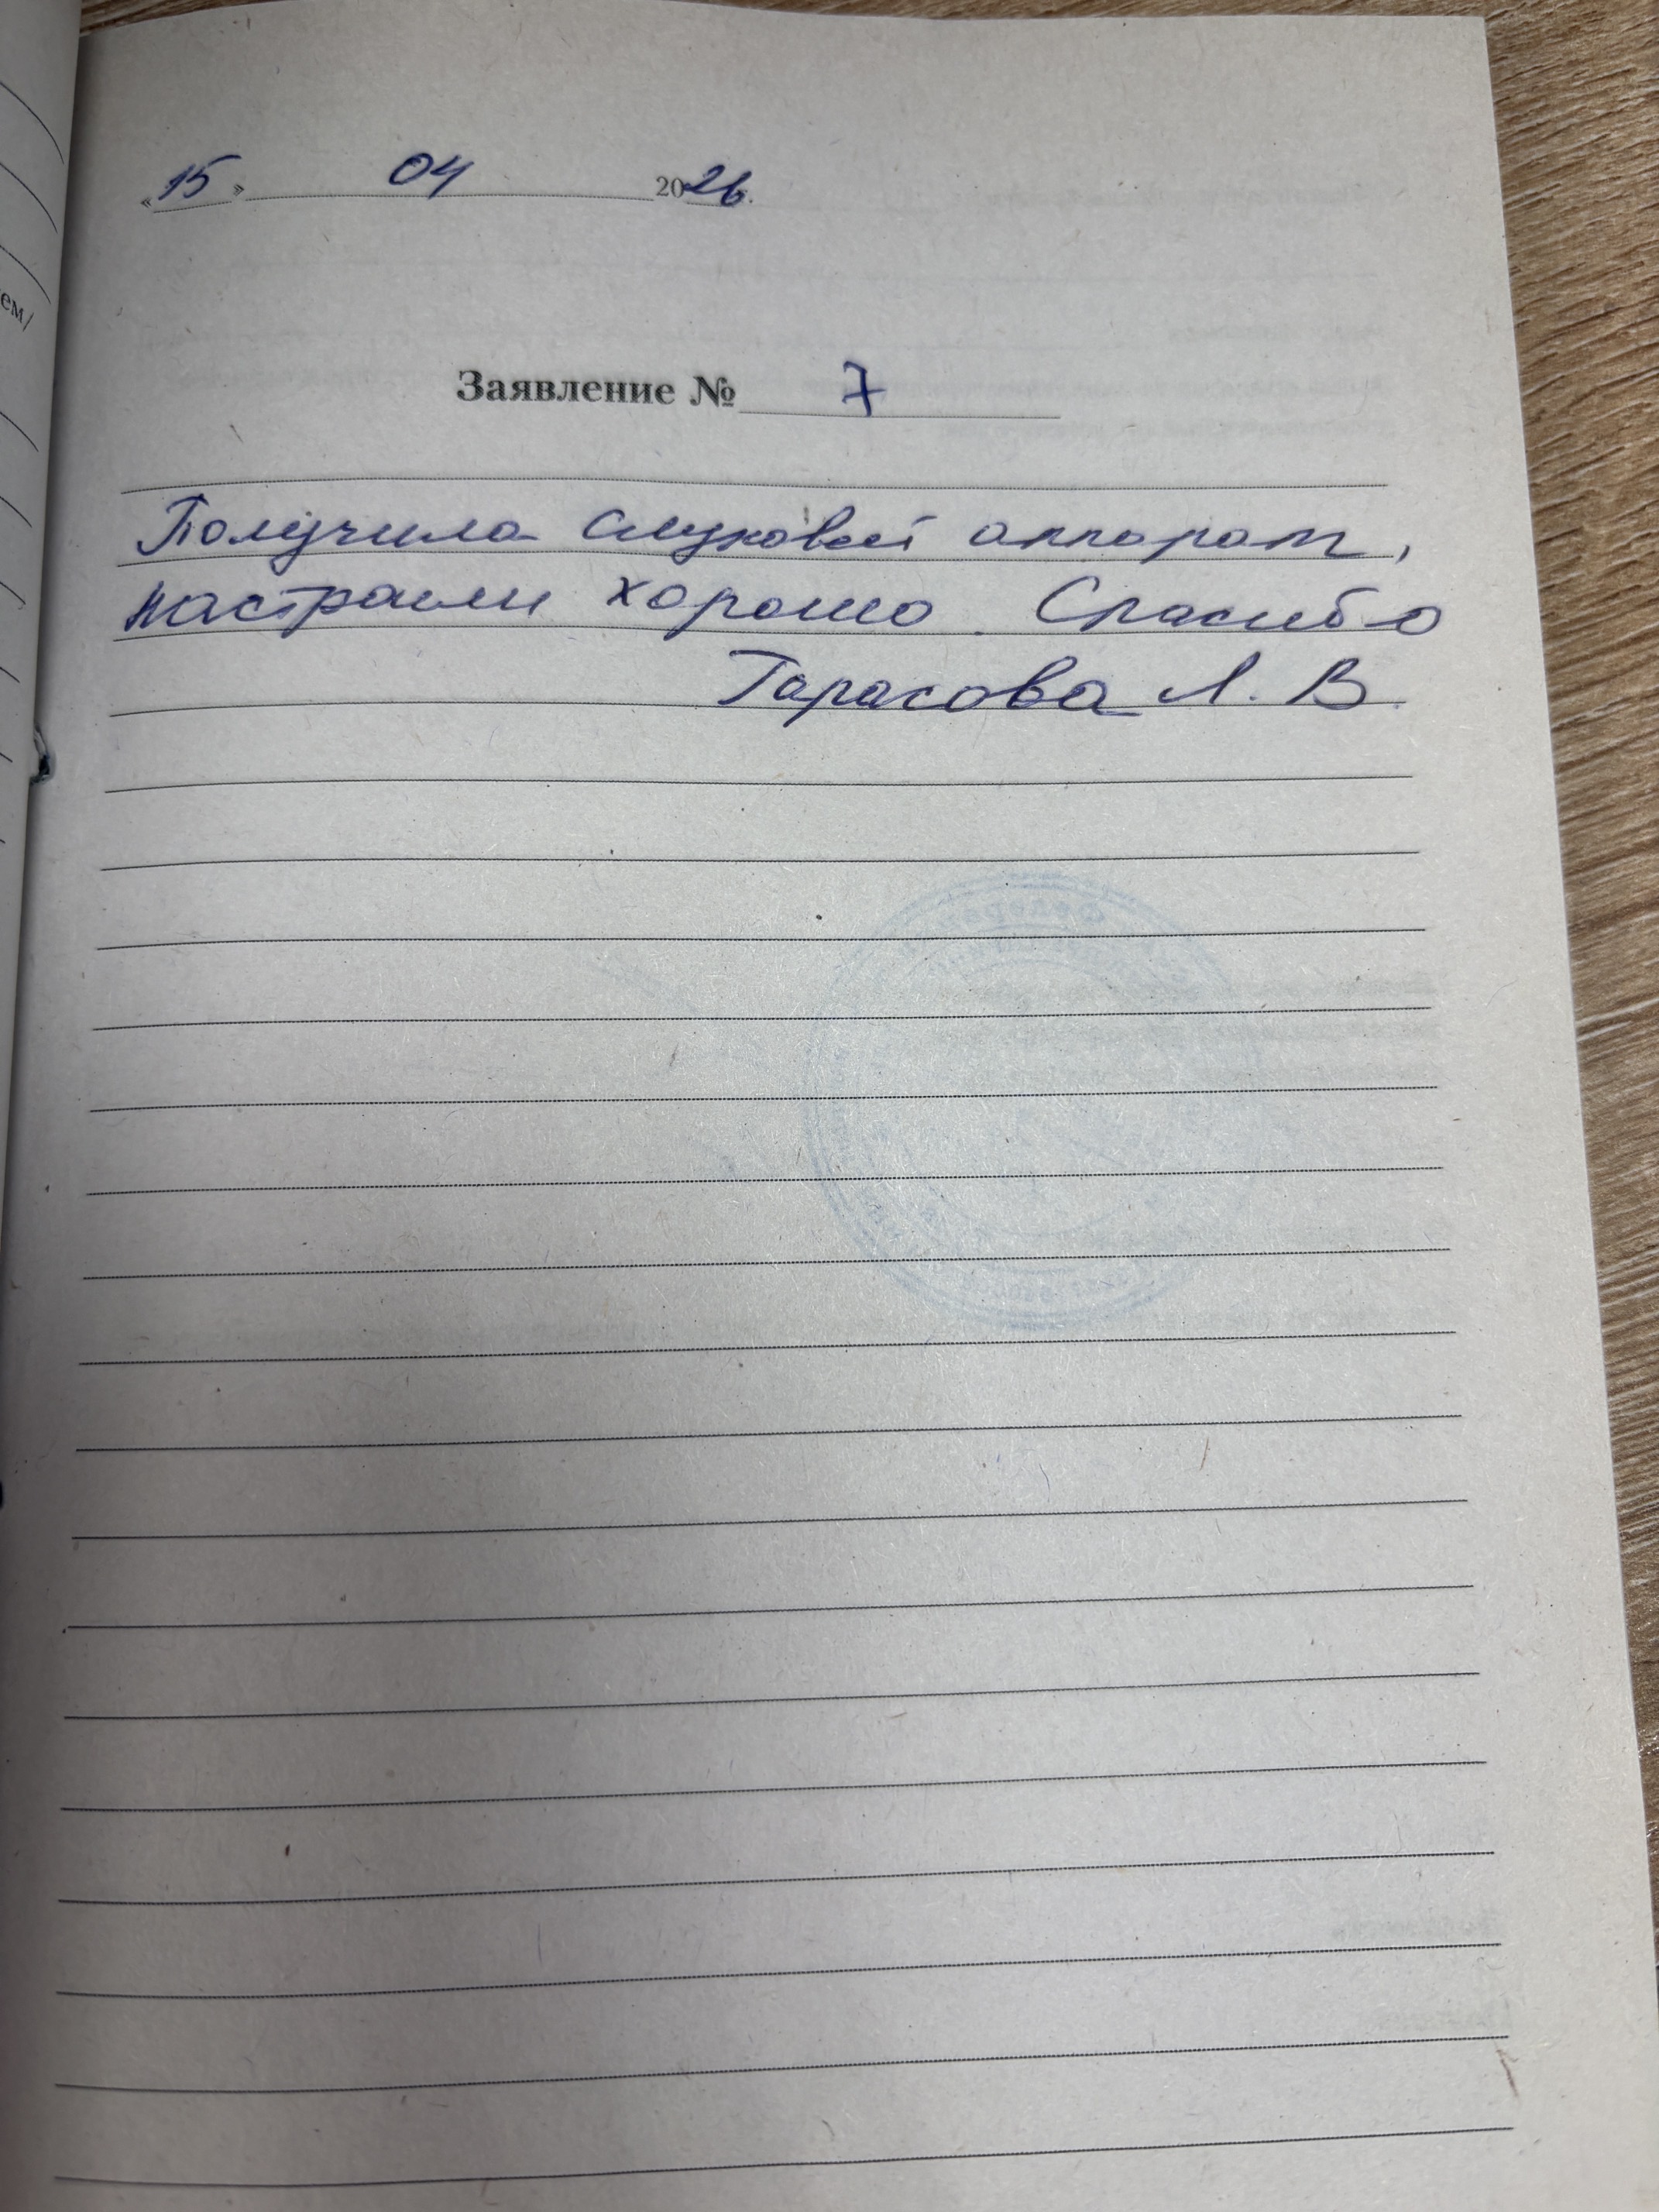 «15» 04 2026.
Заявление № 7
Получила слуховой аппарат,
настроили хорошо. Спасибо
Тарасова Л. В.
ем/